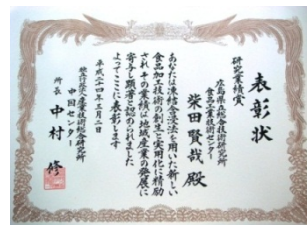 表彰状
研究業績賞
広島県立総合技術研究所
食品工業技術センター
柴田賢哉 殿
あなたは凍結含浸法を用いた新しい
食品加工技術の創生と実用化に精励
され その業績は地域産業の発展に
寄与し顕著と認められました
よってここに表彰します
平成二十四年三月二日
独立行政法人産業技術総合研究所
中国センター
所長 中村 修